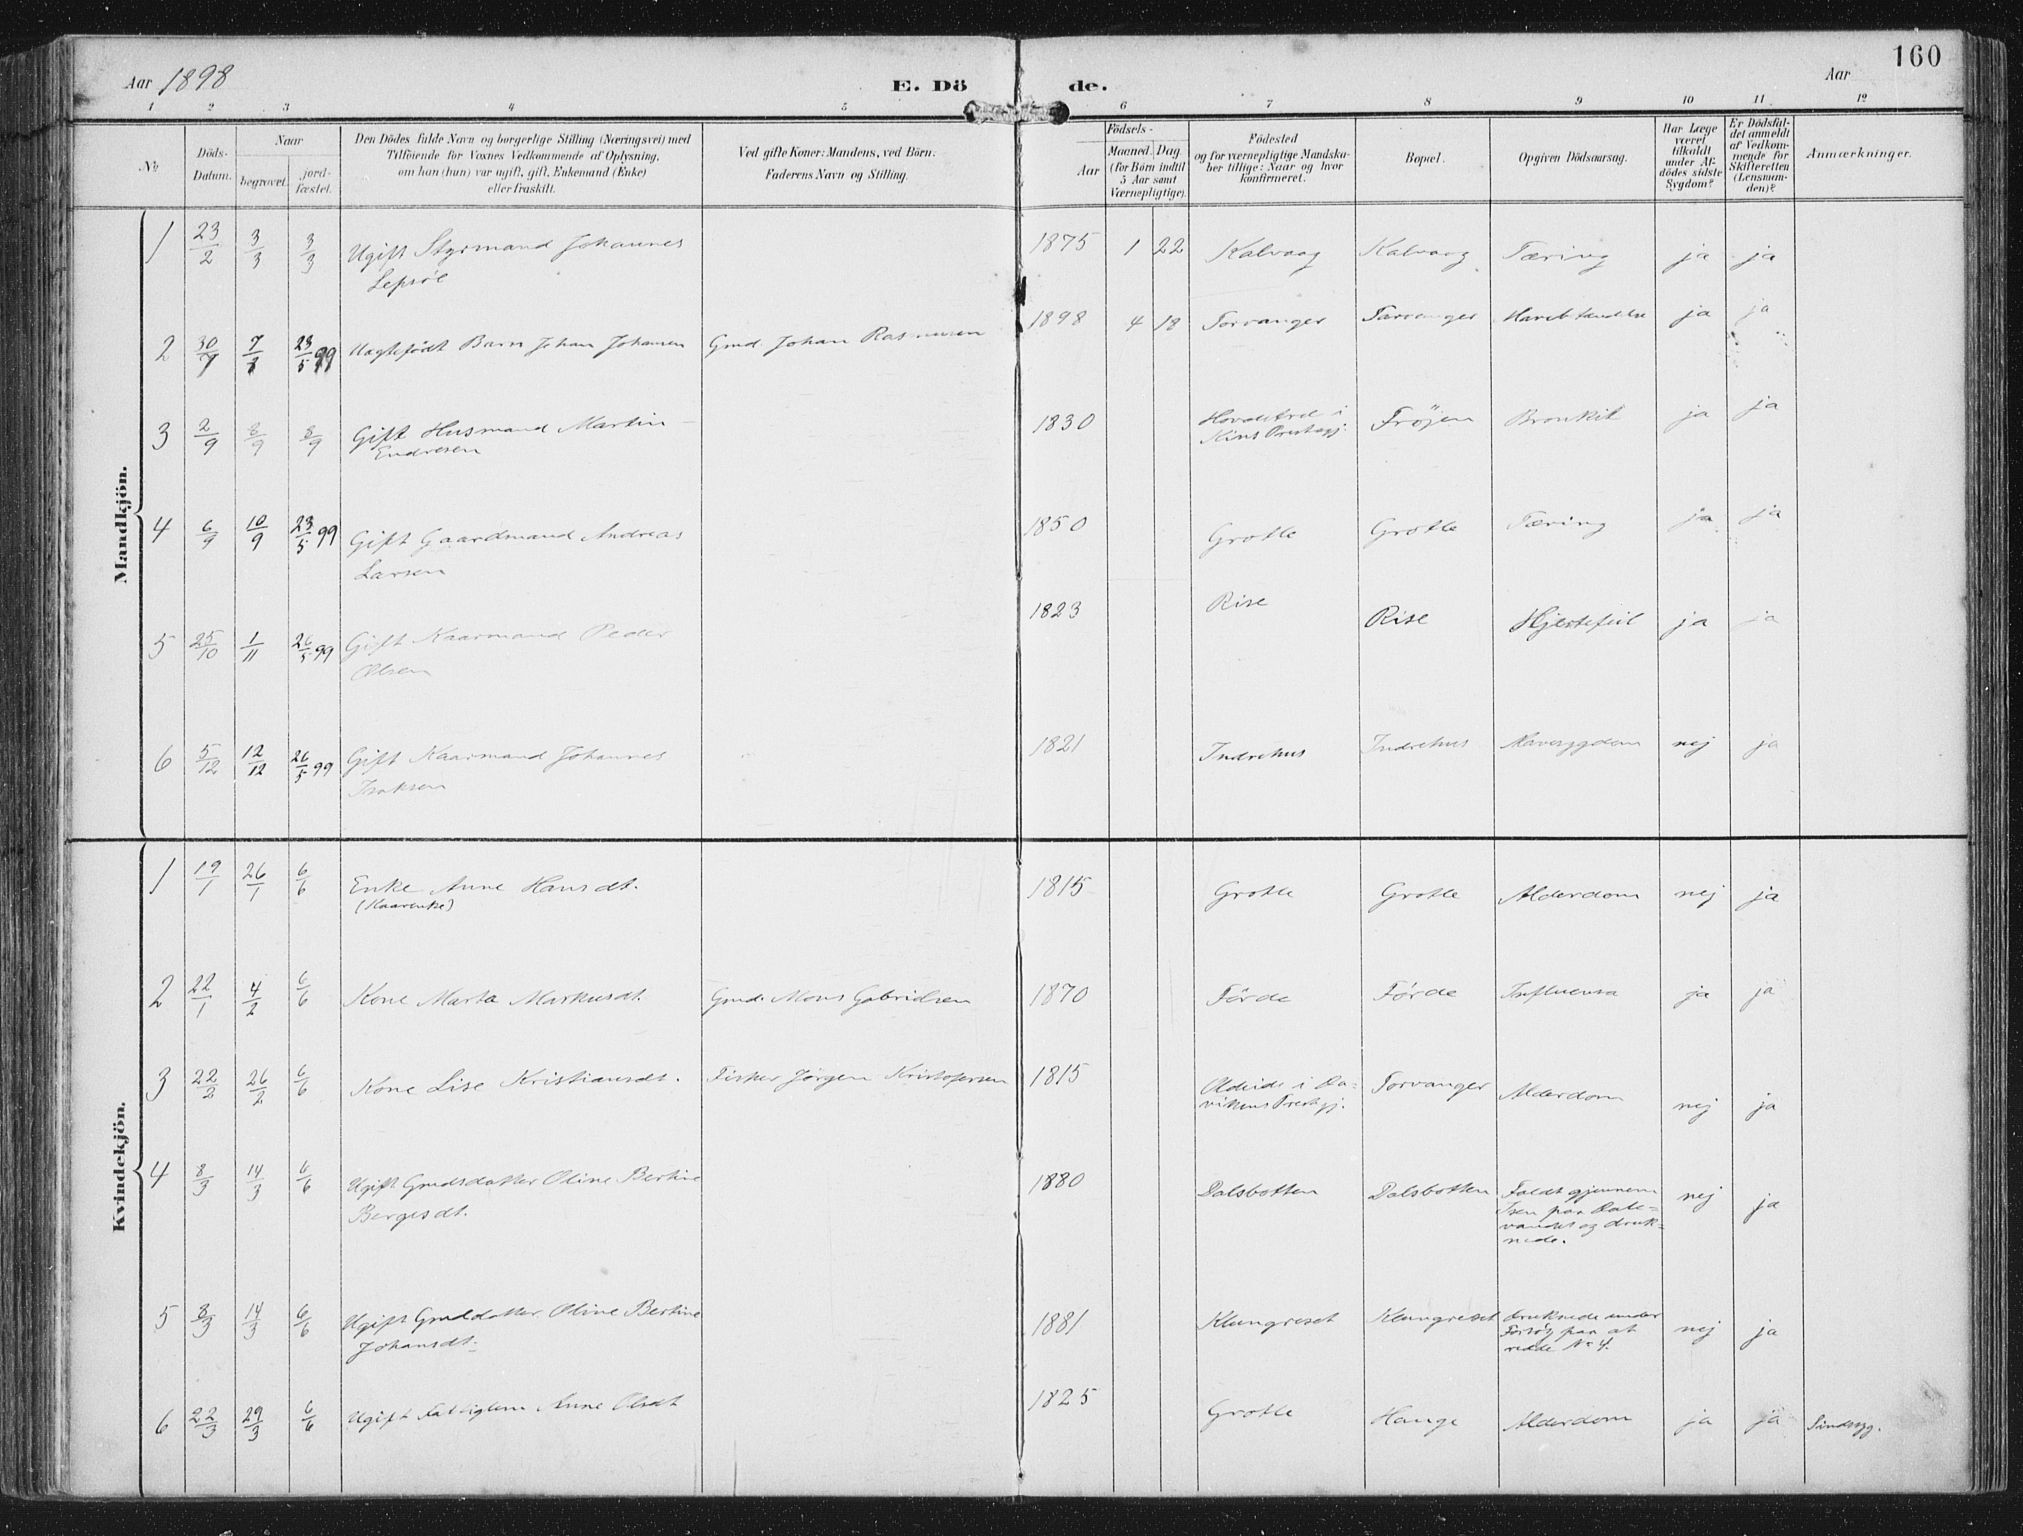 160
Aar 1898
E. Dö
de.
Aar
1 2 3 4 5 6 7 8 9 10 11 12
No
Döds-
Datum.
Naar
begravet.
jord-
fæstet.
Den Dödes fulde Navn og borgerlige Stilling (Næringsvei) med
Tilföiende for Voxnes Vedkommende af Oplysning,
om han (hun) var ugift, gift, Enkemand (Enke)
eller fraskilt.
Ved gifte Koner: Mandens, ved Börn:
Faderens Navn og Stilling.
Födsels-
Aar
Maaned. Dag
(for Börn indtil
5 Aar samt
Værnepligtige).
Födested
og for værnepligtige Mandska-
ber tillige: Naar og hvor
konfirmeret.
Bopæl.
Opgiven Dödsaarsag.
Har Læge
været
tilkaldt
under Af-
dödes sidste
Sygdom?
Er Dödsfal-
det anmeldt
af Vedkom-
mende for
Skifteretten
(Lensman-
den)?
Anmærkninger.
Mandkjön.
1 23/2 3/3 3/3 Ugift Styrmand Johannes
Lepsöe
1875 1 22 Kalvaag Kalvaag Tæring ja ja
2 30/7 7/8 23/5 99 Uægtefödt Barn Johan Johansen Gmd. Johan Rasmusen
1898 4 18 Torvanger Torvanger ja ja
3 2/9 8/9 8/9 Gift Husmand Martin
Endresen
1830 i
Kins Præstegj. Fröjen Bronkit ja ja
4 6/9 10/9 23/5 99 Gift Gaardmand Andreas
Larsen
1850 Grotle Grotle Tæring ja ja
5 25/10 1/11 26/5 99 Gift Kaarmand Peder
Olsen
1823 Rise Rise Hjertefeil ja ja
6 5/12 12/12 26/5 99 Gift Kaarmand Johannes
Isaksen
1821 Indrehus Indrehus Mavesygdom nej ja
Kvindekjön.
1 19/1 26/1 6/6 Enke Anne Hansdt.
(Kaarenke)
1815 Grotle Grotle Alderdom nej ja
2 22/1 4/2 6/6 Kone Marta Markusdt. Gmd. Mons Gabrielsen
1870 Förde Förde Influensa ja ja
3 22/2 26/2 6/6 Kone Lise Kristiansdt. Fisker Jörgen Kristofersen
1815 Aldeide i Da-
vikens Præstegj. Torvanger Alderdom nej ja
4 8/3 14/3 6/6 Ugift Gmdsdatter Oline Bertine
Bergesdt.
1880 Dalsbotten Dalsbotten Faldt gjennem
Isen paa Dale-
vandet og druk-
nede. nej ja
5 8/3 14/3 6/6 Ugift Gmddatter Oline Bertine
Johansdt.
1881 Klungreset Klungreset druknede under
Forsög paa at
redde No 4. nej ja
6 22/3 29/3 6/6 Ugift Fattiglem Anne Olsdt
1825 Grotle Hauge Alderdom ja ja Sindssyg.